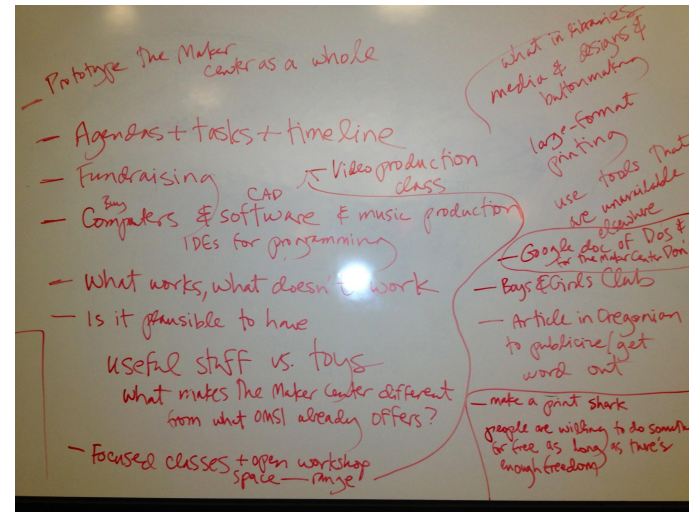 — Prototype The Maker
Center as a whole
— Agendas + tasks + timeline
— Fundraising
Video production
class
Buy
CAD
— Computers & software & music production
IDEs for programming
— What works, what doesn't work
— Is it plausible to have
useful stuff vs. toys
what makes The Maker Center different
from what OMSI already offers?
— Focused classes + open workshop
space — range
what in libraries
media & designs &
buttonmaking
large-format
printing
use tools that
are unavailable
elsewhere
— Google doc of Dos &
for The Maker Center Don'
— Boys & Girls Club
— Article in Oregonian
to publicize/get
word out
— make a print shark
people are willing to do somethi
for free as long as there's
enough freedom